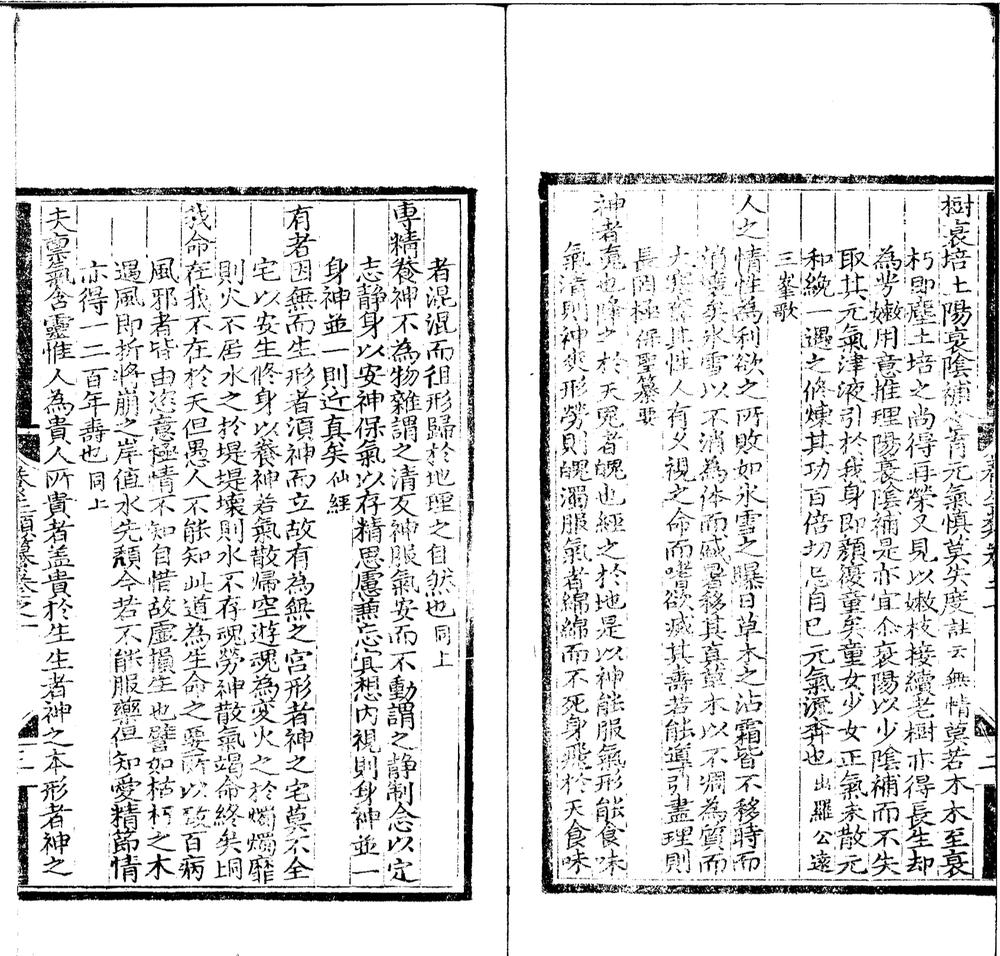 樹衰培土陽衰陰補含育元氣慎莫失度註云無情莫若木木至衰
朽即塵土培之尚得再榮又見以嫩枝接續老樹亦得長生却
為芳嫩用意推理陽衰陰補是亦宜尒衰陽以少陰補而不失
取其元氣津液引於我身即顏復童矣童女少女正氣未散元
和純一遇之修煉其功百倍切忌自己元氣流奔也出羅公遠
三峯歌
人之情性為利欲之所敗如冰雪之曝日草木之沾霜皆不移時而
消壞矣冰雪以不消為体而盛暑移其真草木以不凋為質而
大寒奪其性人有久視之命而嗜欲滅其壽若能導引盡理則
長罔極保聖纂要
神者魂也降之於天鬼者魄也經之於地是以神能服氣形能食味
氣清則神爽形勞則魄濁服氣者綿綿而不死身飛於天食味
養生類卷二
二
者混混而徂形歸於地理之自然也同上
專精養神不為物雜謂之清反神服氣安而不動謂之静制念以定
志静身以安神保氣以存精思慮兼忘冥想内視則身神並一
身神並一則近真矣仙經
有者因無而生形者湏神而立故有為無之宮形者神之宅莫不全
宅以安生修身以養神若氣散歸空遊魂為变火之於燭燭靡
則火不居水之於堤堤壊則水不存魂勞神散氣竭命終矣同上
我命在我不在於天但愚人不能知此道為生命之要所以致百病
風邪者皆由恣意極情不知自惜故虛損生也譬如枯朽之木
遇風即折將崩之岸值水先頹今若不能服藥但知愛精節情
亦得一二百年壽也同上
夫禀氣含靈惟人為貴人所貴者盖貴於生生者神之本形者神之